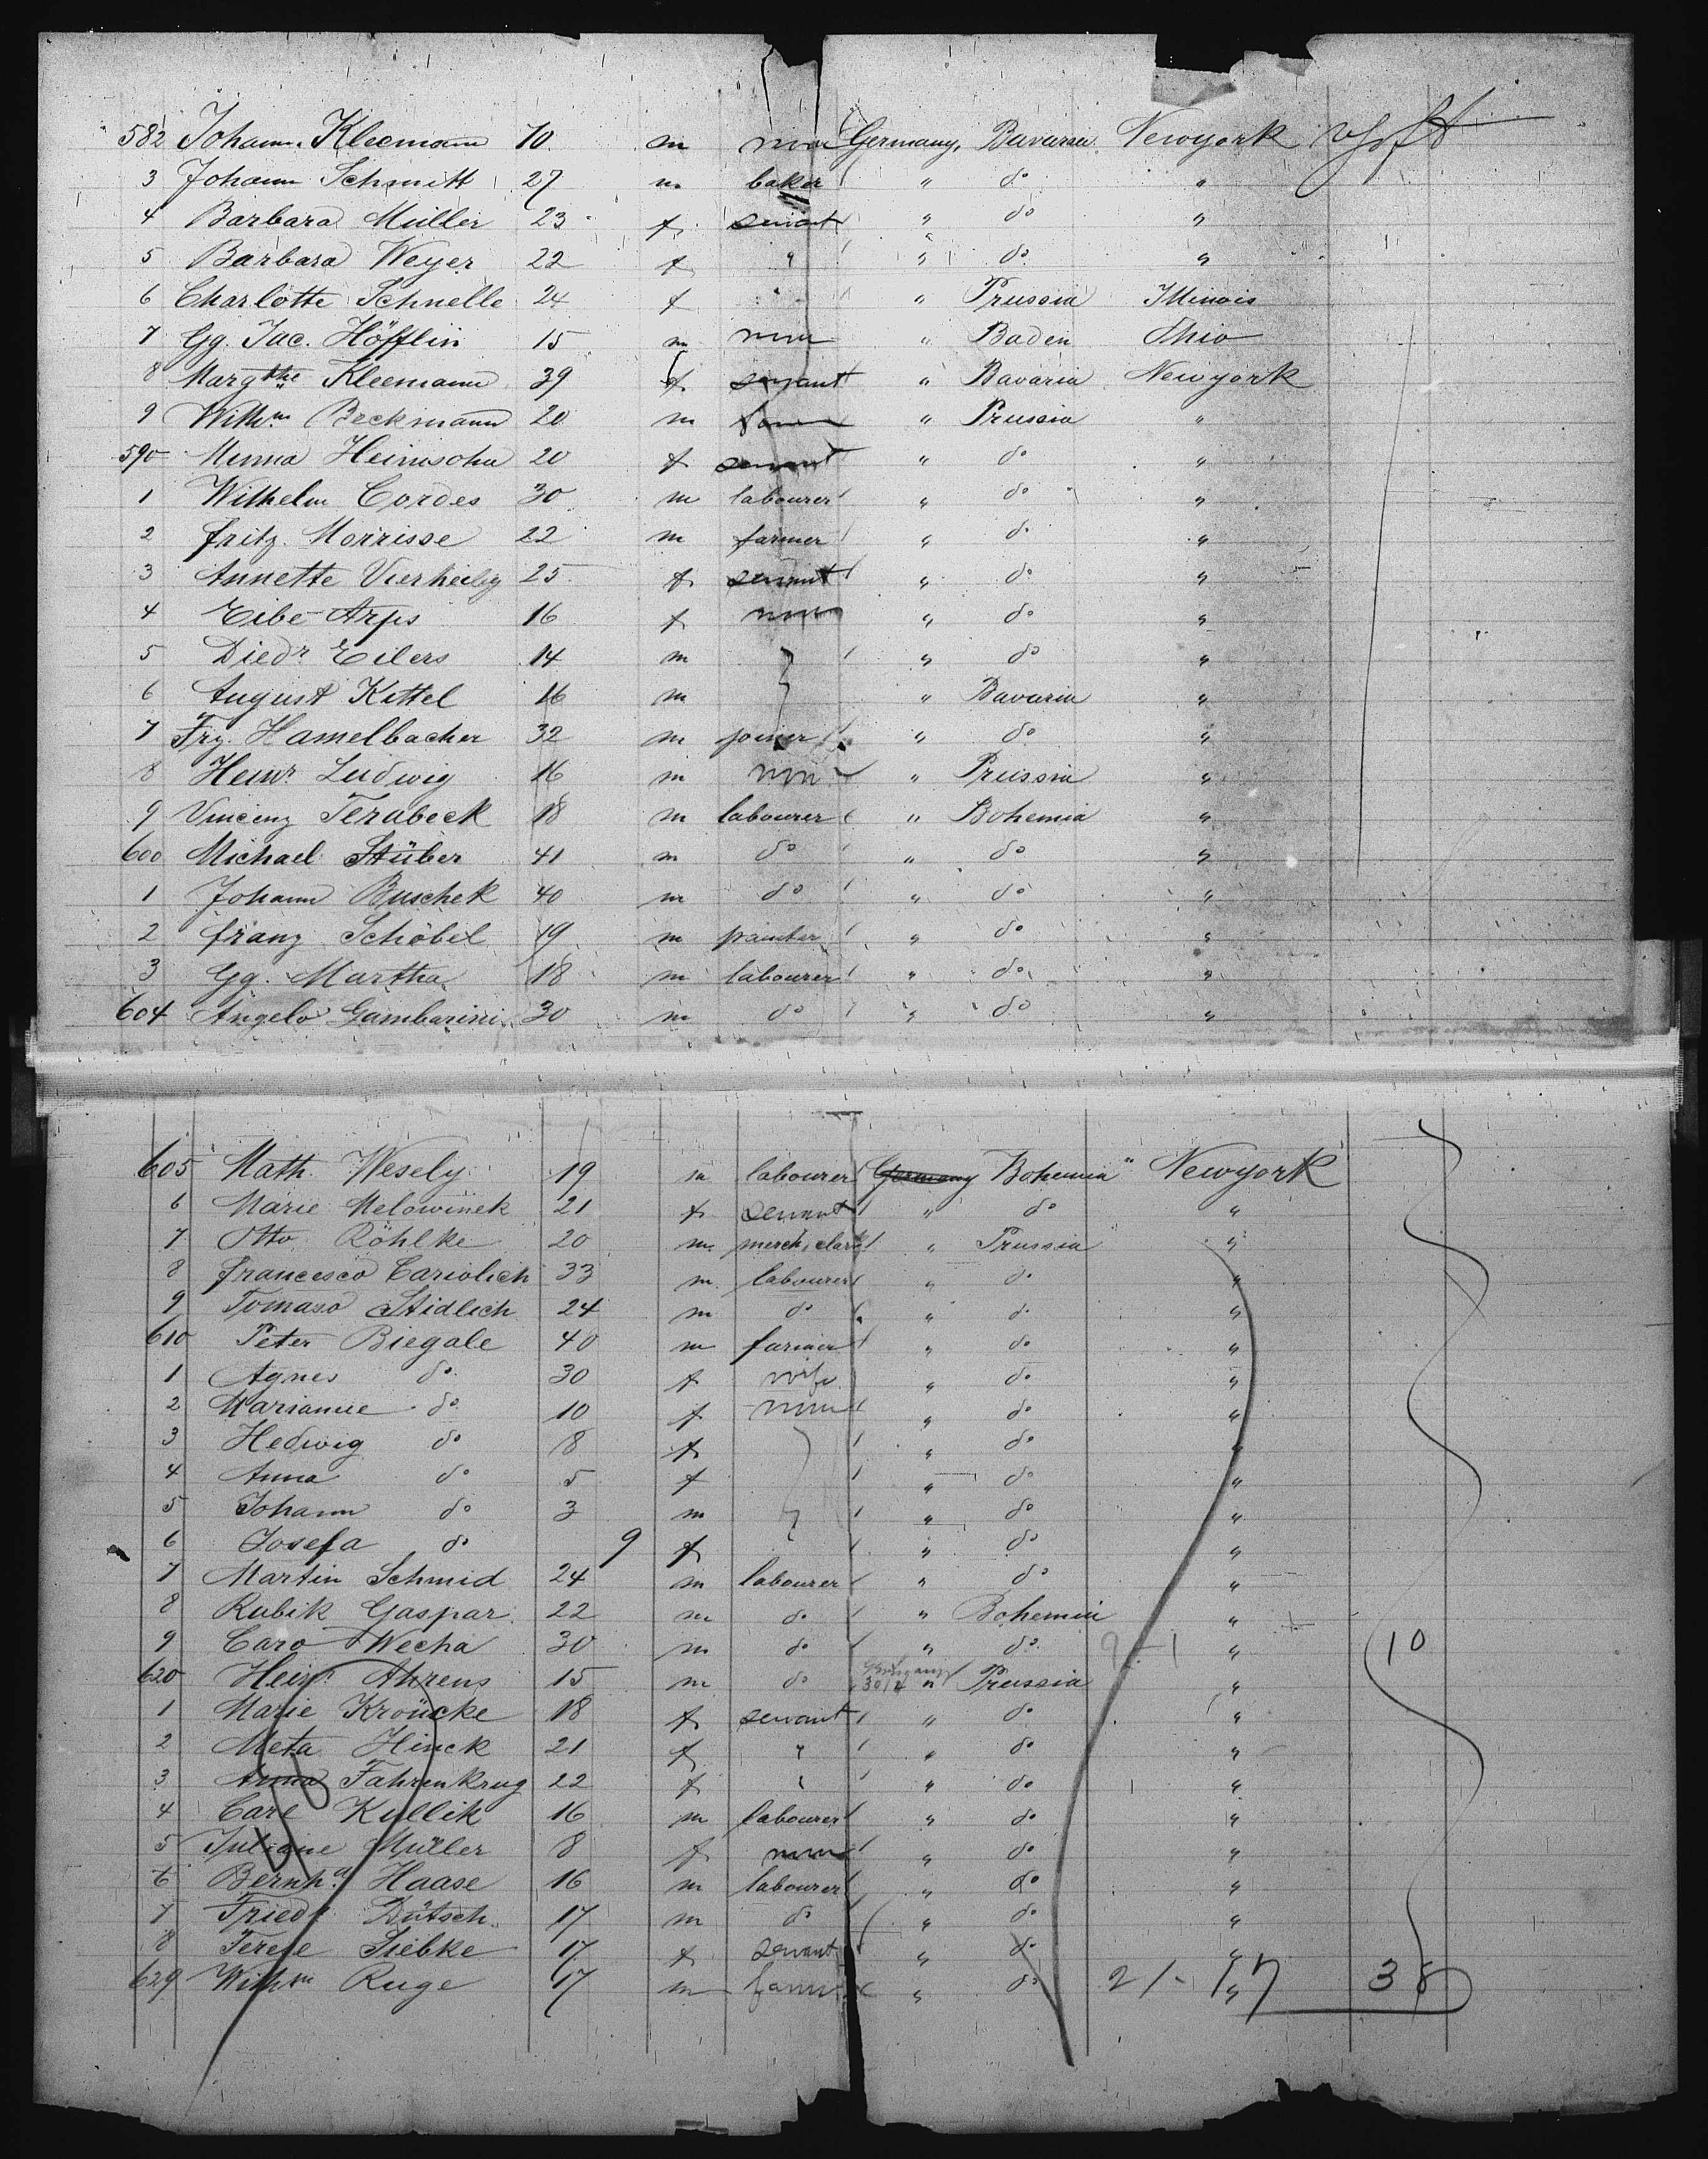 582 Johann Kleemann 10 m none Germany, Bavaria Newyork
3 Johann Schmitt 27 m baker " do "
4 Barbara Müller 23 f servant " do "
5 Barbara Weyer 22 f " " do "
6 Charlotte Schnelle 24 f " " Prussia Illinois
7 Gg. Jac. Höfflin 15 m none " Baden Ohio
8 Margthe Kleemann 39 f servant " Bavaria Newyork
9 Wilhm Beckmann 20 m " Prussia "
590 Minna Heinsohn 20 f servant " do "
1 Wilhelm Cordes 30 m labourer " do "
2 Fritz Morrisse 22 m farmer " do "
3 Annette Vierheilig 25 f servant " do "
4 Eibe Arps 16 f none " do "
5 Diedr Eilers 14 m " do "
6 August Kettel 16 m " Bavaria "
7 Frz. Hamelbacher 32 m joiner " do "
8 Heinr Ludwig 16 m none " Prussia "
9 Vincenz Terabeck 18 m labourer " Bohemia "
600 Michael Stüber 41 m do " do "
1 Johann Buschek 40 m do " do "
2 Franz Schöbel 19 m painter " do "
3 Gg. Martha 18 m labourer " do "
604 Angelo Gambarini 30 m do " do "
605 Math. Wesely 19 m labourer Germany Bohemia " Newyork
6 Marie Melowinek 21 f servant " do "
7 Otto Röhlke 20 m merch. clark " Prussia "
8 Francesco Cariolich 33 m labourer " do "
9 Tomaso Stidlich 24 m do " do "
610 Peter Biegale 40 m farmer " do "
1 Agnes do 30 f wife " do "
2 Marianne do 10 f none " do "
3 Hedwig do 8 f " do "
4 Anna do 5 f " do "
5 Johann do 3 m " do "
6 Josefa do 9 f " do "
7 Martin Schmid 24 m labourer " do "
8 Rubik Gaspar 22 m do " Bohemia "
9 Caro Wecha 30 m do " do 9-1 " 10
620 Heinr. Ahrens 15 m do " Prussia "
1 Marie Kröncke 18 f servant " do "
2 Meta Hinck 21 f " " do "
3 Anna Fahrenkrug 22 f " " do "
4 Carl Kullik 16 m labourer " do "
5 Juliane Müller 8 f none " do "
6 Bernhd Haase 16 m labourer " do "
7 Friedr Dütsch 17 m do " do "
8 Terese Siebke 17 f servant " do "
629 Wilhm Ruge 17 m farmer " do 21-17 " 38